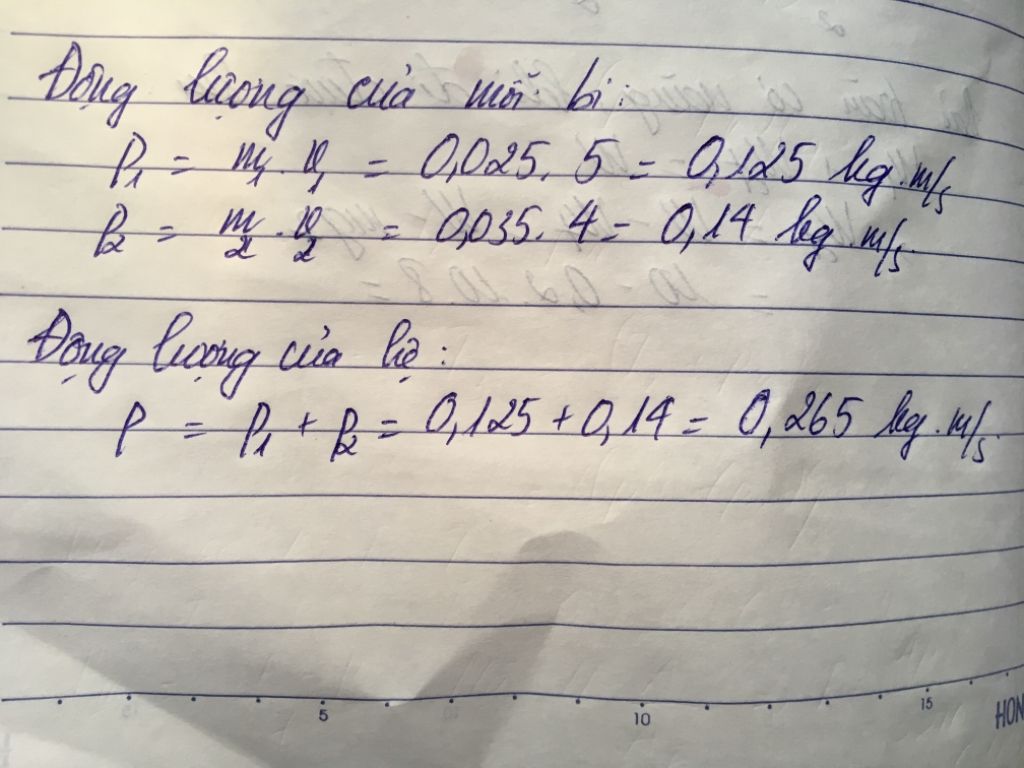 Động lượng của mỗi bi:
p₁ = m₁.v₁ = 0,025. 5 = 0,125 kg.m/s
p₂ = m₂.v₂ = 0,035. 4 = 0,14 kg.m/s.
Động lượng của hệ:
p = p₁ + p₂ = 0,125 + 0,14 = 0,265 kg.m/s.
5 10 15
HON